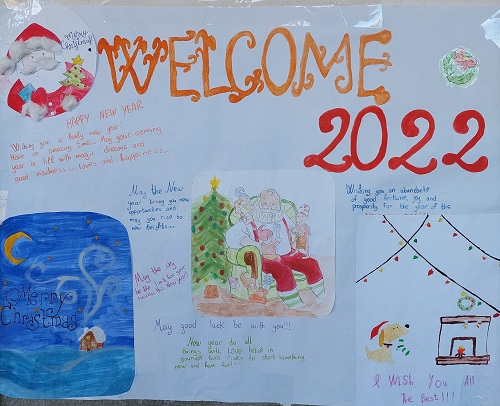 Merry Christmas!
WELCOME
2022
HAPPY NEW YEAR
Wishing you a lovely new year!
Have an amazing time... May your coming
year be fill with magic dreams and
good madness... lovers and happiness...
May the New
year bring you new
opportunities and
may you rise to
new heights...
Wishing you an abundance
of good fortune, joy and
prosperity for the year of the
May the sky
be the limit for your
success this New Year!
Merry
Christmas
May good luck be with you!!!
New year do all
things with Love believe in
yourself take risks to start something
new and have fun!!
I Wish You All
The Best!!!